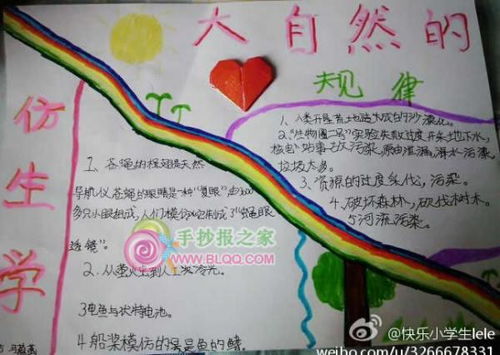 大自然的
规律
仿生学
1、人类开垦着土地造成的沙漠化。
2、"生物圈二号"实验失败过度开采地下水,
核电站事故污染,原油泄漏,潜水污染
垃圾太多。
3、资源的过度丢化,污染。
4、破坏森林,砍伐树木。
5、河流污染。
1、苍蝇的楫翅是天然
导航仪,苍蝇的眼睛是一种"复眼"由3000
多只小眼组成,人们模仿它制成了"蝇眼
透镜"。
2、从萤火虫到人工冷光。
3电鱼与伏特电池。
4船桨模仿的是鱼的鳍。
手抄报之家
WWW.BLQQ.COM
@快乐小学生lele
weibo.com/u/3266678331